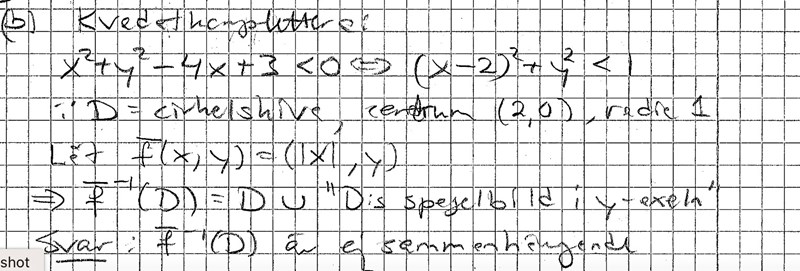 (b) Kvadratkomplettera:
x²+y²-4x+3<0 ⇔ (x-2)²+y²<1
∴ D = cirkelskiva, centrum (2,0), radie 1
Låt f̄(x,y) = (|x|, y)
⇒ f̄⁻¹(D) = D ∪ "D:s spegelbild i y-axeln"
Svar: f̄⁻¹(D) är ej sammanhängande
shot